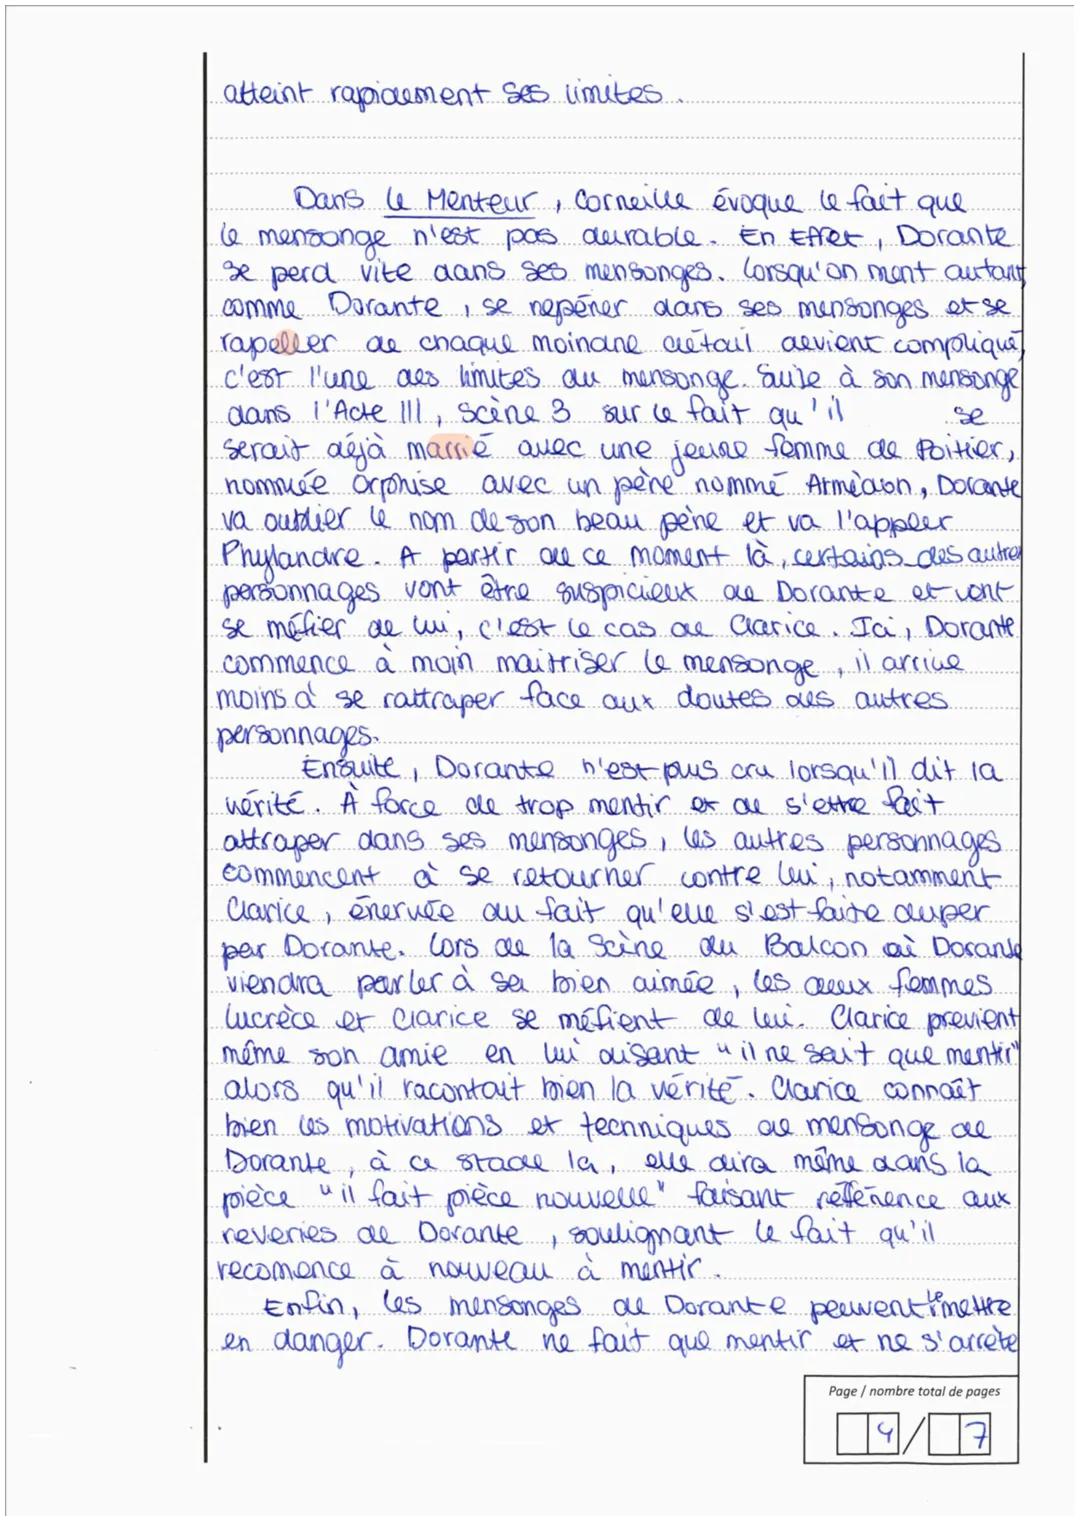 atteint rapidement ses limites.
Dans le Menteur, Corneille évoque le fait que
le mensonge n'est pas durable. En Effet, Dorante
se perd vite dans ses mensonges. Lorsqu'on ment autant
comme Dorante, se repérer dans ses mensonges et se
rapeller de chaque moindre détail devient compliqué,
c'est l'une des limites du mensonge. Suite à son mensonge
dans l'Acte III, scène 3 sur le fait qu'il se
serait déjà marrié avec une jeune femme de Poitier,
nommée Orphise avec un père nommé Armédon, Dorante
va oublier le nom de son beau père et va l'appeler
Phylandre. A partir de ce moment là, certains des autres
personnages vont être suspicieux de Dorante et vont
se méfier de lui, c'est le cas de Clarice. Ici, Dorante
commence à moin maitriser le mensonge, il arrive
moins à se rattraper face aux doutes des autres
personnages.
Ensuite, Dorante n'est plus cru lorsqu'il dit la
vérité. À force de trop mentir et de s'etre fait
attraper dans ses mensonges, les autres personnages
commencent à se retourner contre lui, notamment
Clarice, énervée du fait qu'elle s'est faite duper
par Dorante. Lors de la Scène du Balcon où Dorante
viendra parler à sa bien aimée, les deux femmes
Lucrèce et Clarice se méfient de lui. Clarice previent
même son amie en lui disant "il ne sait que mentir"
alors qu'il racontait bien la vérité. Clarice connaît
bien les motivations et techniques de mensonge de
Dorante, à ce stade la, elle dira même dans la
pièce "il fait pièce nouvelle" faisant référence aux
reveries de Dorante, soulignant le fait qu'il
recomence à nouveau à mentir.
Enfin, les mensonges de Dorante peuvent le mettre
en danger. Dorante ne fait que mentir et ne s'arrête
Page / nombre total de pages
4/7